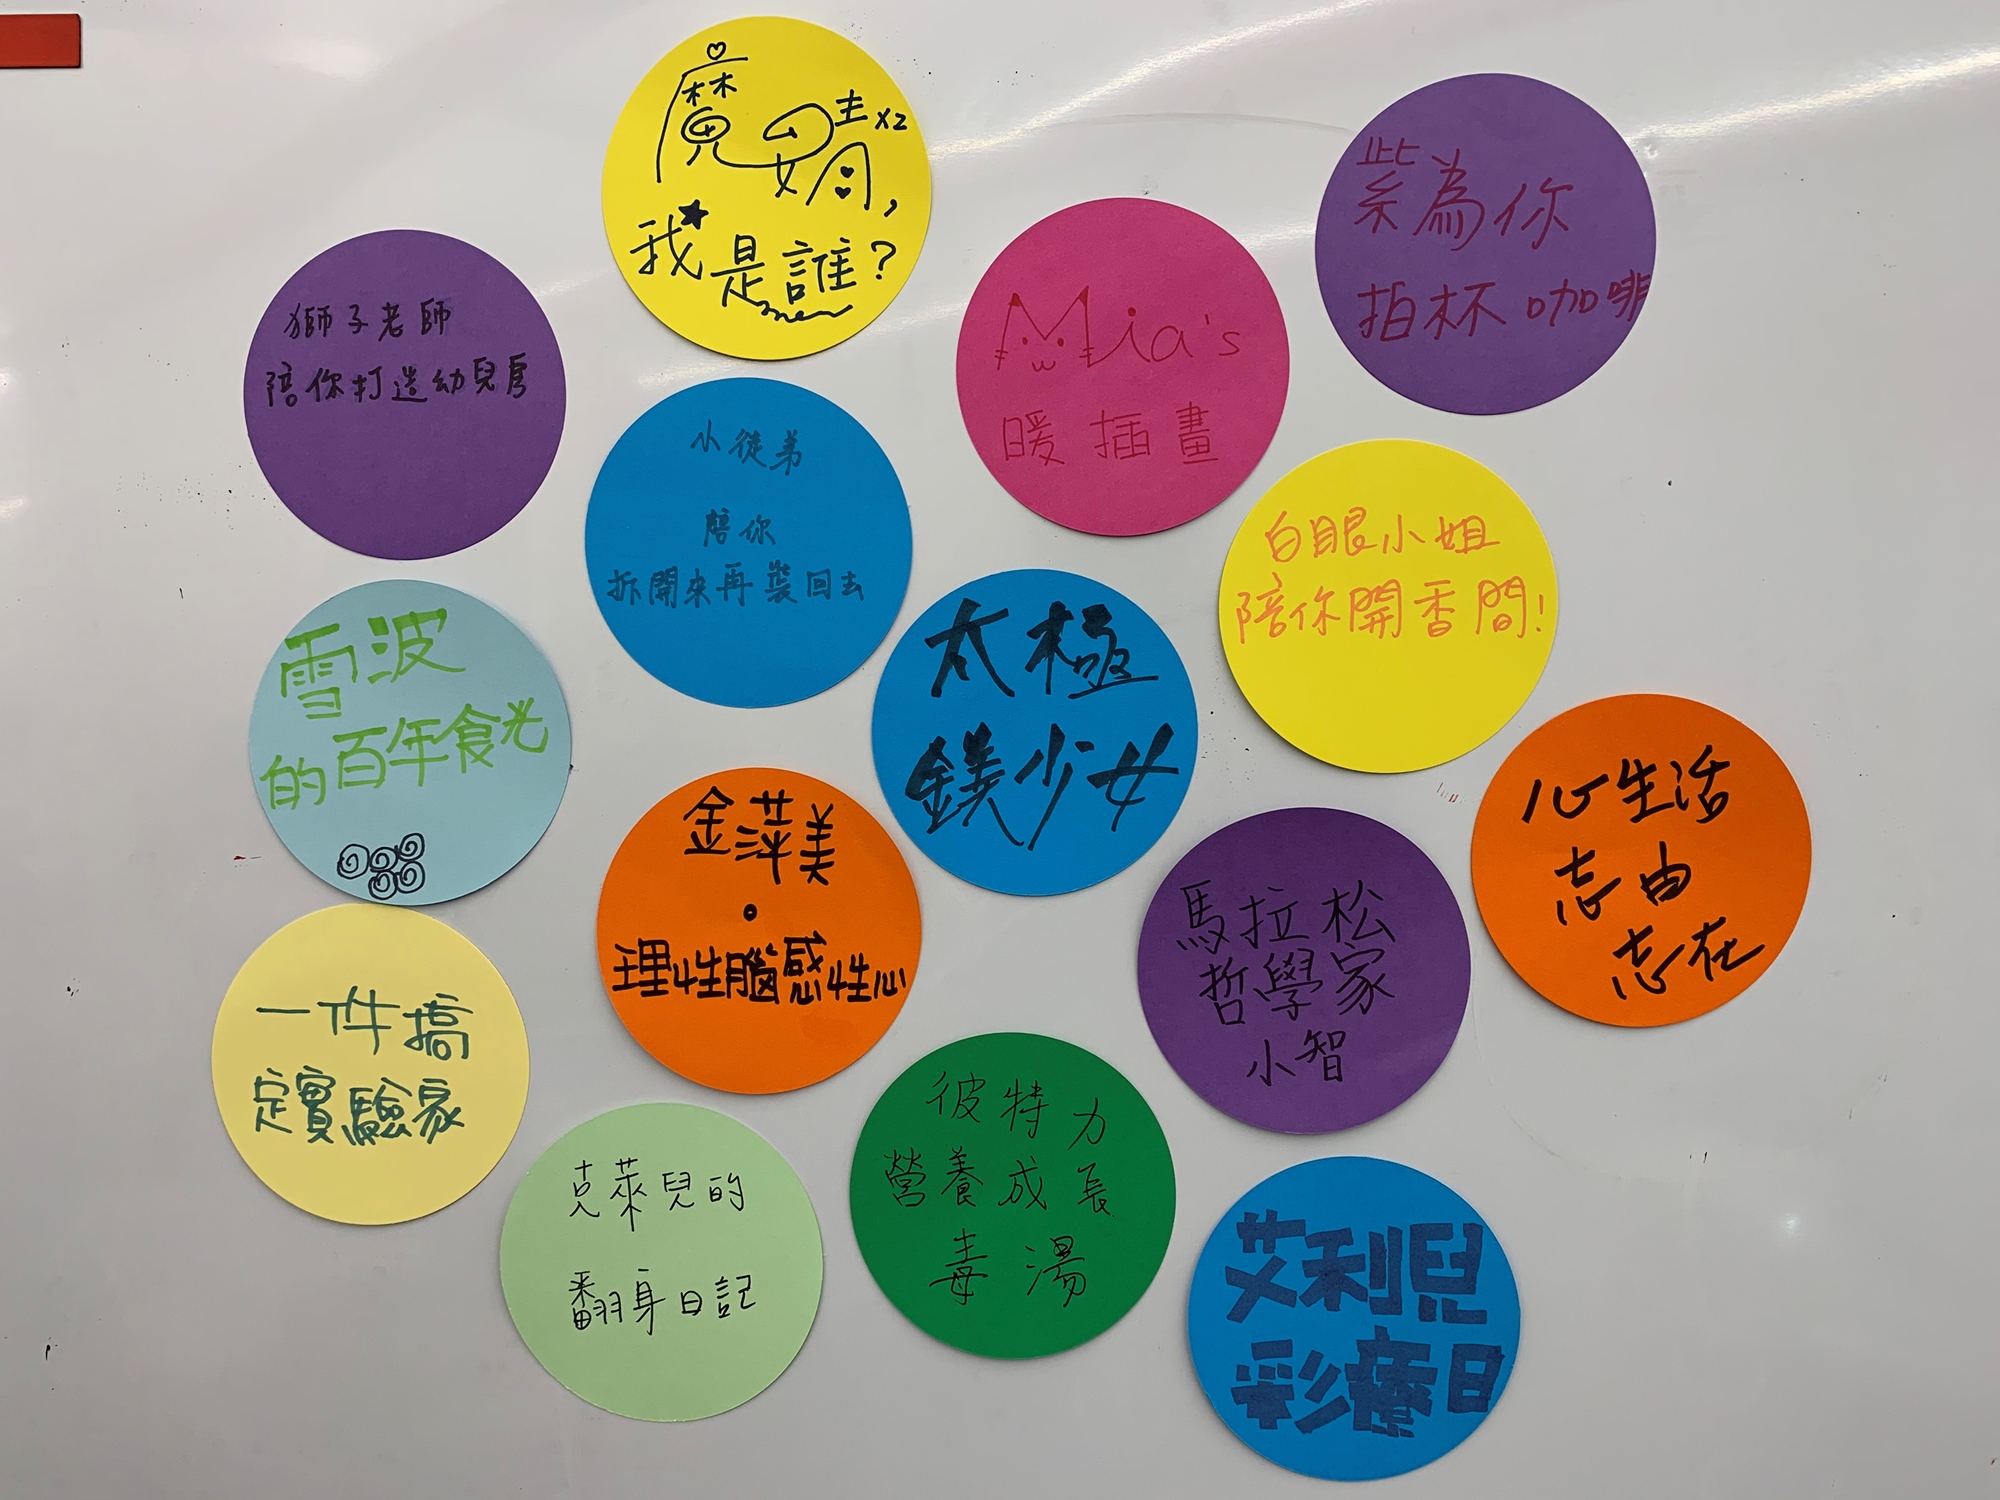 魔鏡x2,
我是誰?
紫為你
拍杯咖啡
Mia's
暖插畫
獅子老師
陪你打造幼兒房
小徒弟
陪你
拆開來再裝回去
白眼小姐
陪你開香間!
雪波
的百年食光
太極
鎂少女
心生活
志由
志在
金萍美
理性腦感性心
馬拉松
哲學家
小智
一件搞
定實驗家
彼特力
營養成長
毒湯
克萊兒的
翻身日記
艾利兒
彩療日